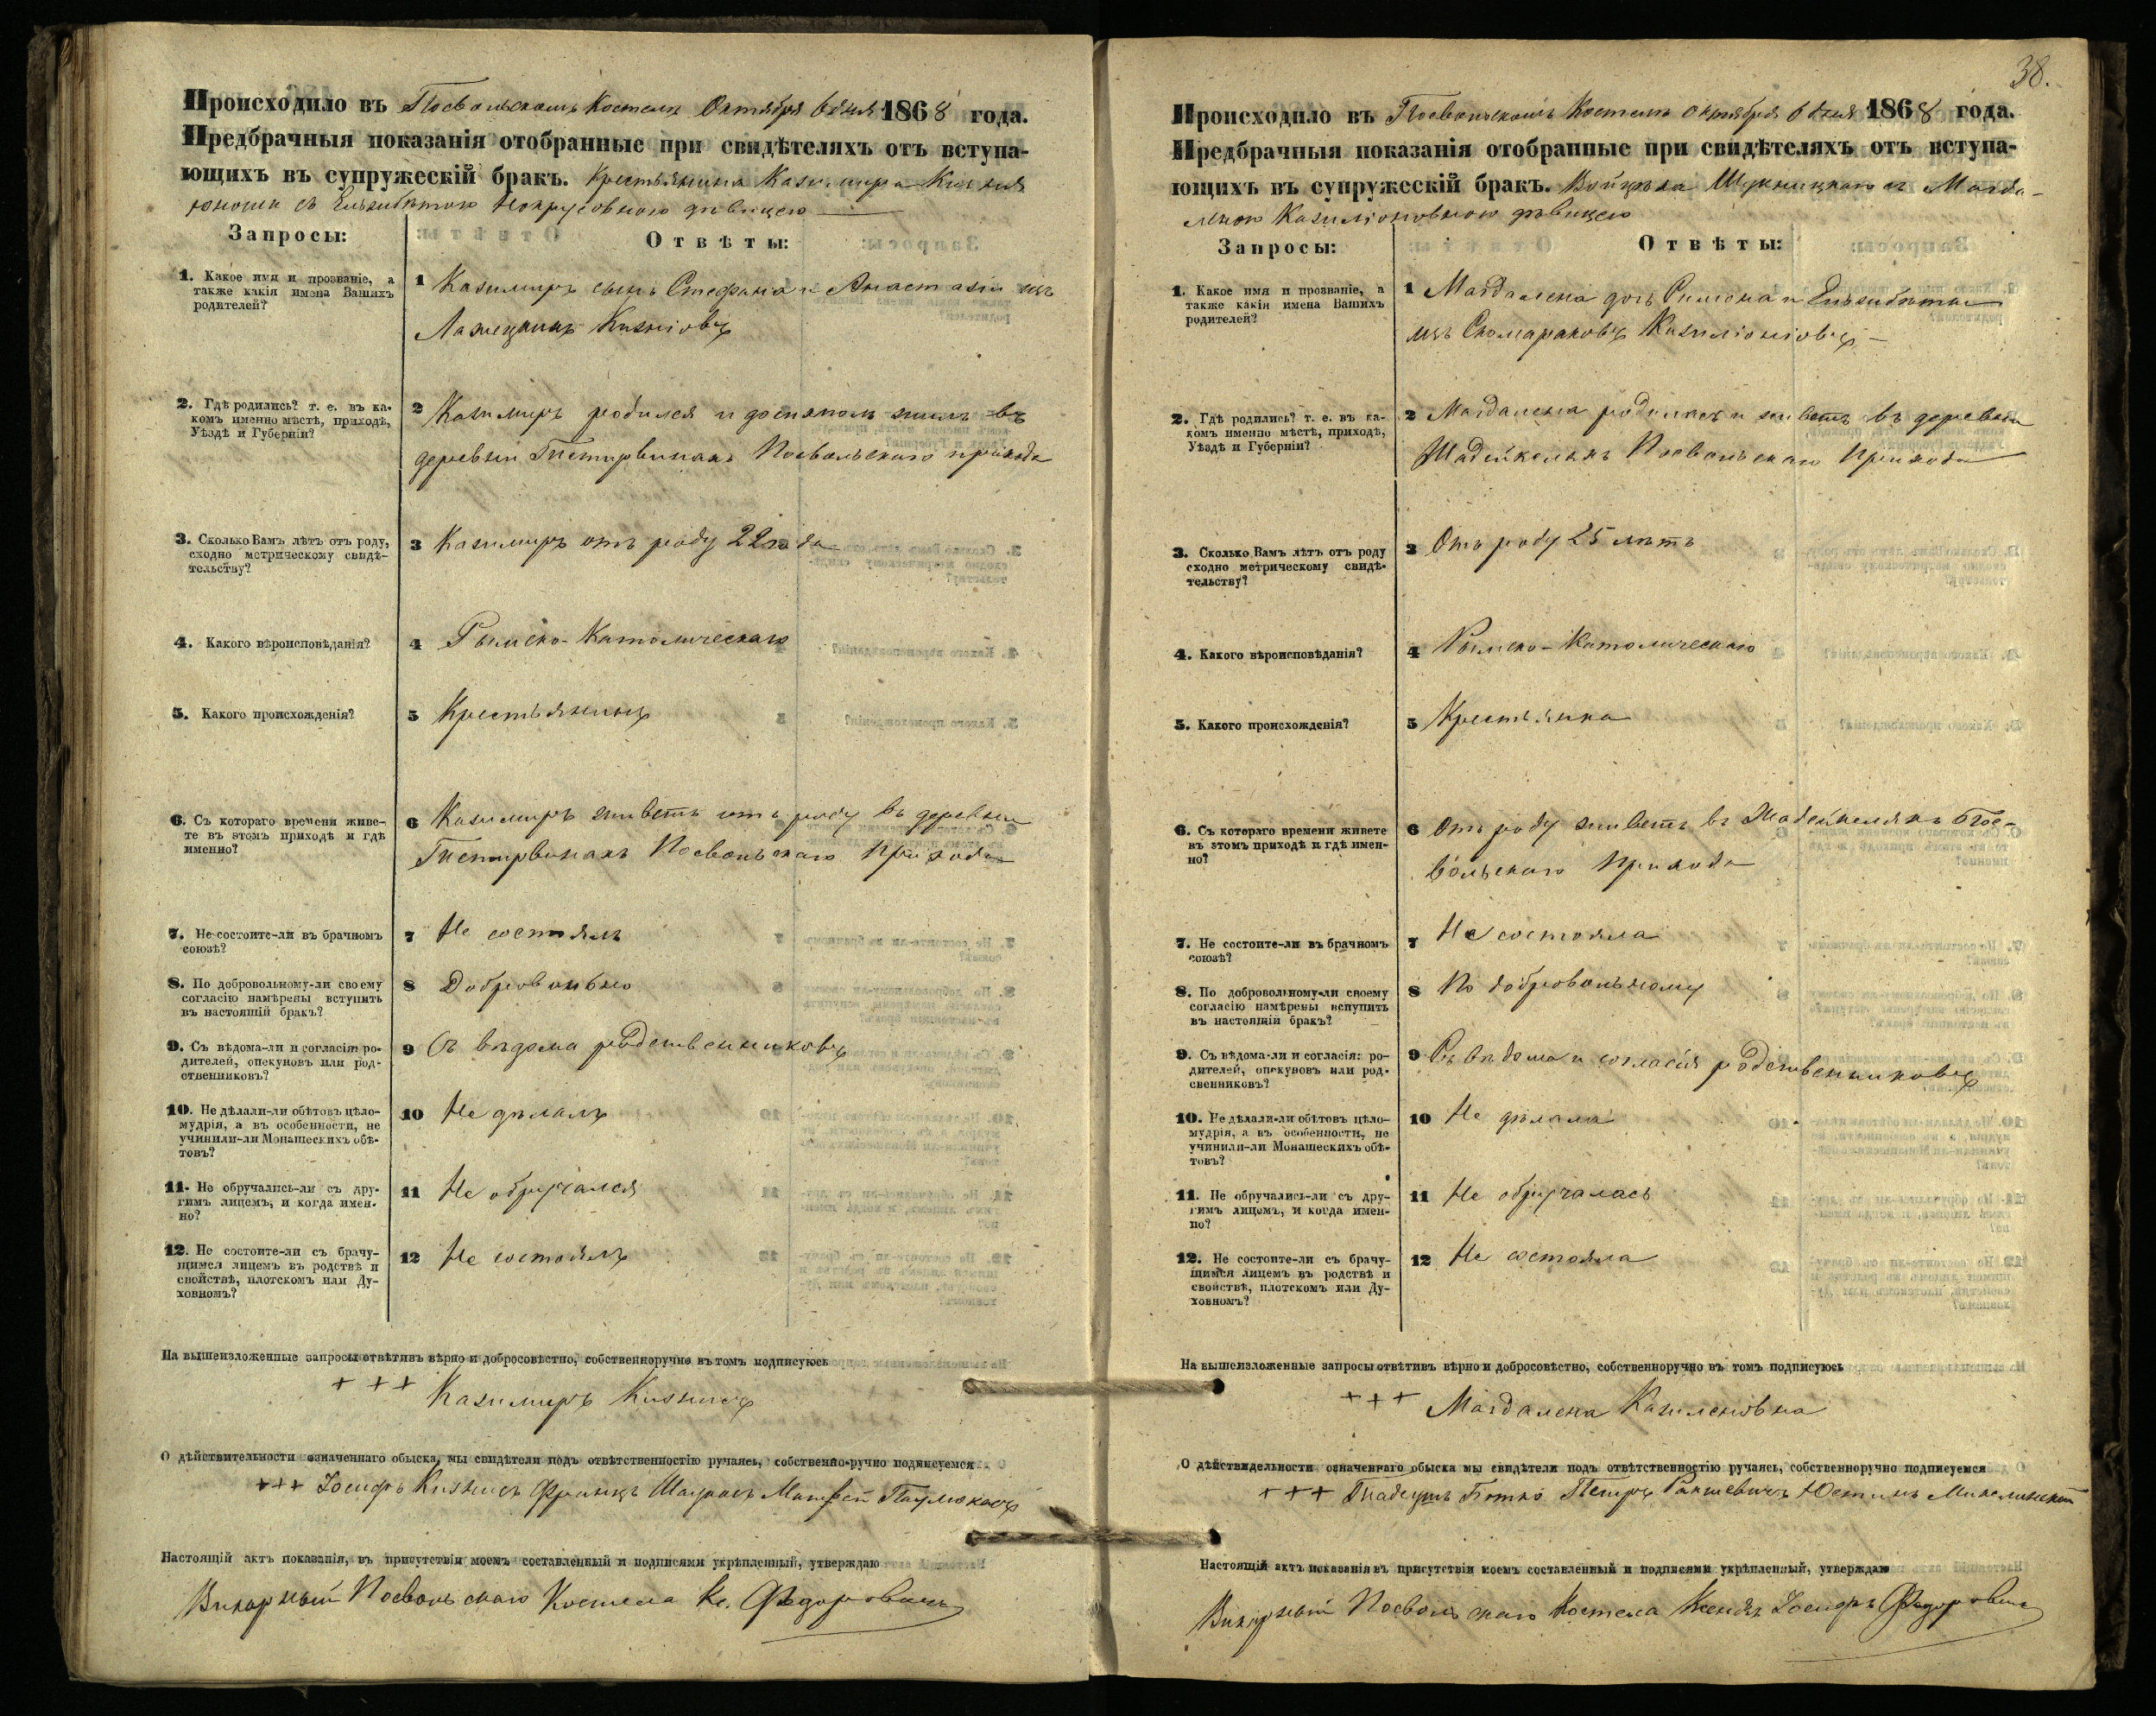 Происходило въ Посвольскомъ Костелѣ Октября 6 дня 1868 года.
Предбрачныя показанія отобранные при свидѣтеляхъ отъ вступа-
ющихъ въ супружескій бракъ. Крестьянина Казимира
юноши съ Елисаветою дѣвицею
Запросы:
Отвѣты:
1. Какое имя и прозваніе, а
также какія имена Вашихъ
родителей?
1 Казимиръ сынъ Стефана и Анастазіи изъ
2. Гдѣ родились? т. е. въ ка-
комъ именно мѣстѣ, приходѣ,
Уѣздѣ и Губерніи?
2 Казимиръ родился и жилъ въ
деревни Посвольскаго прихода
3. Сколько Вамъ лѣтъ отъ роду,
сходно метрическому свидѣ-
тельству?
3 Казимиръ отъ роду 22 года
4. Какого вѣроисповѣданія?
4 Римско-Католическаго
5. Какого происхожденія?
5 Крестьянинъ
6. Съ котораго времени живе-
те въ этомъ приходѣ и гдѣ
именно?
6 Казимиръ живетъ отъ роду въ деревни
Посвольскаго Прихода
7. Не состоите-ли въ брачномъ
союзѣ?
7 Не состоялъ
8. По добровольному-ли своему
согласію намѣрены вступить
въ настоящій бракъ?
8 Добровольно
9. Съ вѣдома-ли и согласія ро-
дителей, опекуновъ или род-
ственниковъ?
9 Съ вѣдома родственниковъ
10. Не дѣлали-ли обѣтовъ цѣло-
мудрія, а въ особенности, не
учинили-ли Монашескихъ обѣ-
товъ?
10 Не дѣлалъ
11. Не обручались-ли съ дру-
гимъ лицемъ, и когда имен-
но?
11 Не обручался
12. Не состоите-ли съ брачу-
щимся лицемъ въ родствѣ и
свойствѣ, плотскомъ или Ду-
ховномъ?
12 Не состоялъ
На вышеизложенные запросы отвѣтивъ вѣрно и добросовѣстно, собственноручно въ томъ подписуюсь
+ + + Казимиръ
О дѣйствительности означеннаго обыска, мы свидѣтели подъ отвѣтственностію ручаясь, собственно-ручно подписуемся
+++ Іосифъ Францъ Матвей
Настоящій актъ показанія, въ присутствіи моемъ составленный и подписями укрѣпленный, утверждаю
Викарный Посвольскаго Костела Кс. Федоровичъ
38.
Происходило въ Посвольскомъ Костелѣ Октября 6 дня 1868 года.
Предбрачныя показанія отобранные при свидѣтеляхъ отъ вступа-
ющихъ въ супружескій бракъ. Войцѣха и Магда-
леною дѣвицею
Запросы:
Отвѣты:
1. Какое имя и прозваніе, а
также какія имена Вашихъ
родителей?
1 Магдалена дочь Симона и
изъ
2. Гдѣ родились? т. е. въ ка-
комъ именно мѣстѣ, приходѣ,
Уѣздѣ и Губерніи?
2 Магдалена родилась и живетъ въ деревни
Посвольскаго Прихода
3. Сколько Вамъ лѣтъ отъ роду
сходно метрическому свидѣ-
тельству?
3 Отъ роду 25 лѣтъ
4. Какого вѣроисповѣданія?
4 Римско-Католическаго
5. Какого происхожденія?
5 Крестьянка
6. Съ котораго времени живете
въ этомъ приходѣ и гдѣ имен-
но?
6 Отъ роду живетъ въ Пос-
вольскаго Прихода
7. Не состоите-ли въ брачномъ
союзѣ?
7 Не состояла
8. По добровольному-ли своему
согласію намѣрены вступить
въ настоящій бракъ?
8 По добровольному
9. Съ вѣдома-ли и согласія: ро-
дителей, опекуновъ или род-
свенниковъ?
9 Съ вѣдома и согласія родственниковъ
10. Не дѣлали-ли обѣтовъ цѣло-
мудрія, а въ особенности, не
учинили-ли Монашескихъ обѣ-
товъ?
10 Не дѣлала
11. Не обручались-ли съ дру-
гимъ лицемъ, и когда имен-
но?
11 Не обручалась
12. Не состоите-ли съ брачу-
щимся лицемъ въ родствѣ и
свойствѣ, плотскомъ или Ду-
ховномъ?
12 Не состояла
На вышеизложенные запросы отвѣтивъ вѣрно и добросовѣстно, собственноручно въ томъ подписуюсь
+ + + Магдалена
О дѣйствидельности означеннаго обыска мы свидѣтели подъ отвѣтственностію ручаясь, собственноручно подписуемся
+ + + Петръ Юстинъ
Настоящій актъ показанія въ присутствіи моемъ составленный и подписями укрѣпленный, утверждаю
Викарный Посвольскаго Костела Ксендзъ Іосифъ Федоровичъ